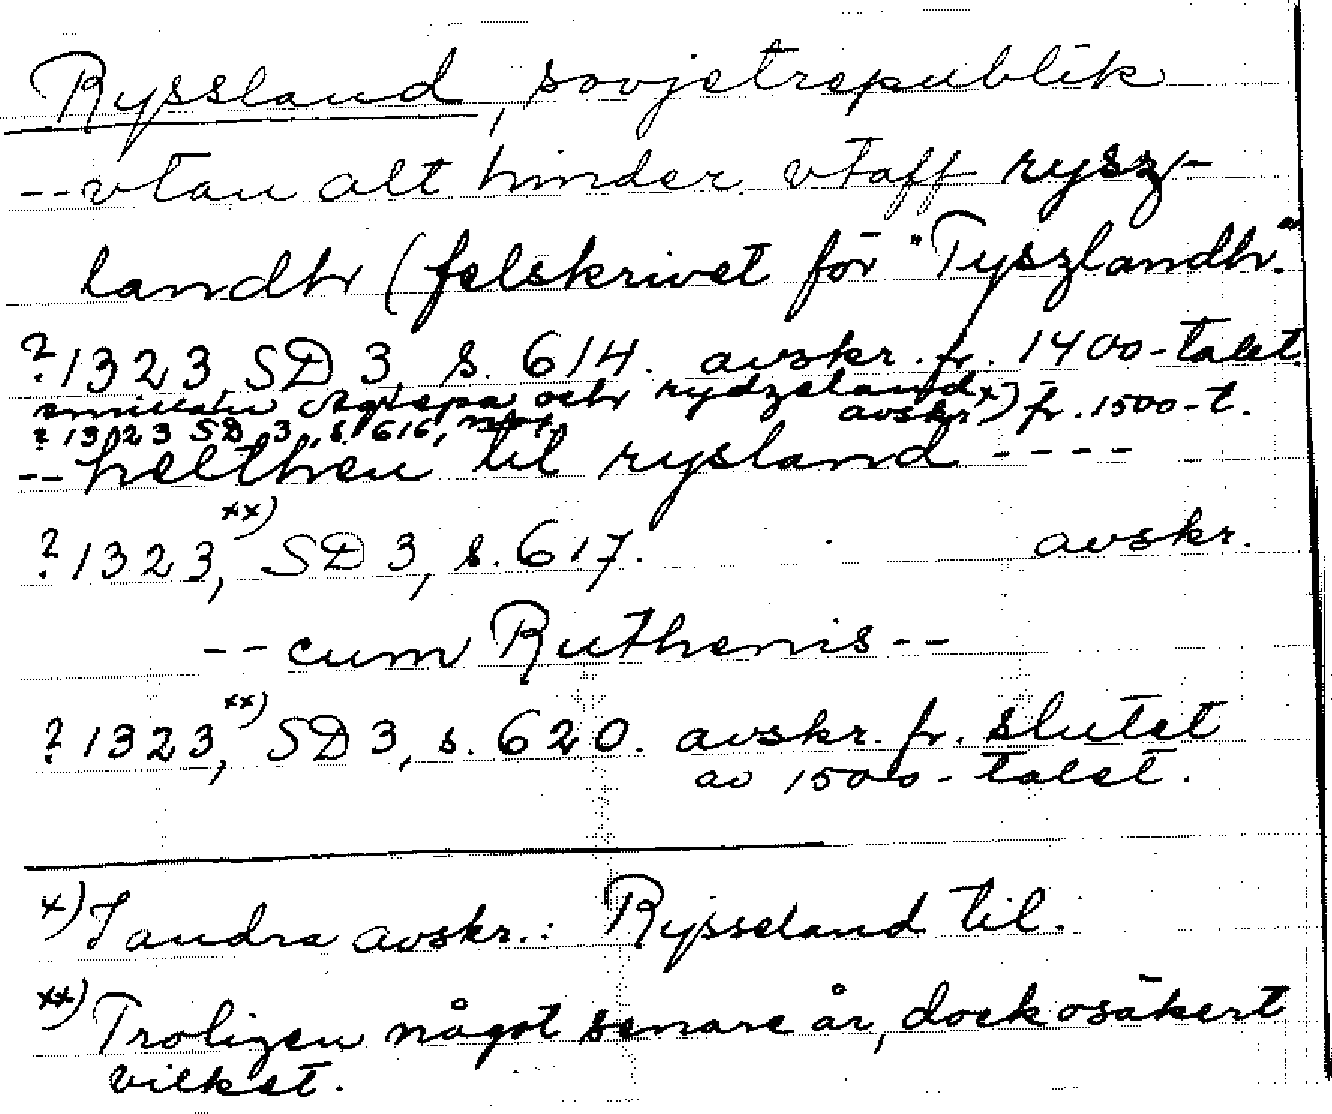 Ryssland, sovjetrepublik
--vtan alt hinder vtaff rysz-
landh (felskrivet för "Tyszlandh."
?1323, SD 3, s. 614. avskr. fr. 1400-talet.
och rydzeland x)
avskr. fr. 1500-t.
?1323 SD 3, s. 616,
--helthen til rysland ----
?1323, xx) SD 3, s. 617. avskr.
--cum Ruthenis--
?1323, xx) SD 3, s. 620. avskr. fr. slutet
av 1500-talet.
x) I andra avskr.: Rysseland til.
xx) Troligen något senare år, dock osäkert
vilket.